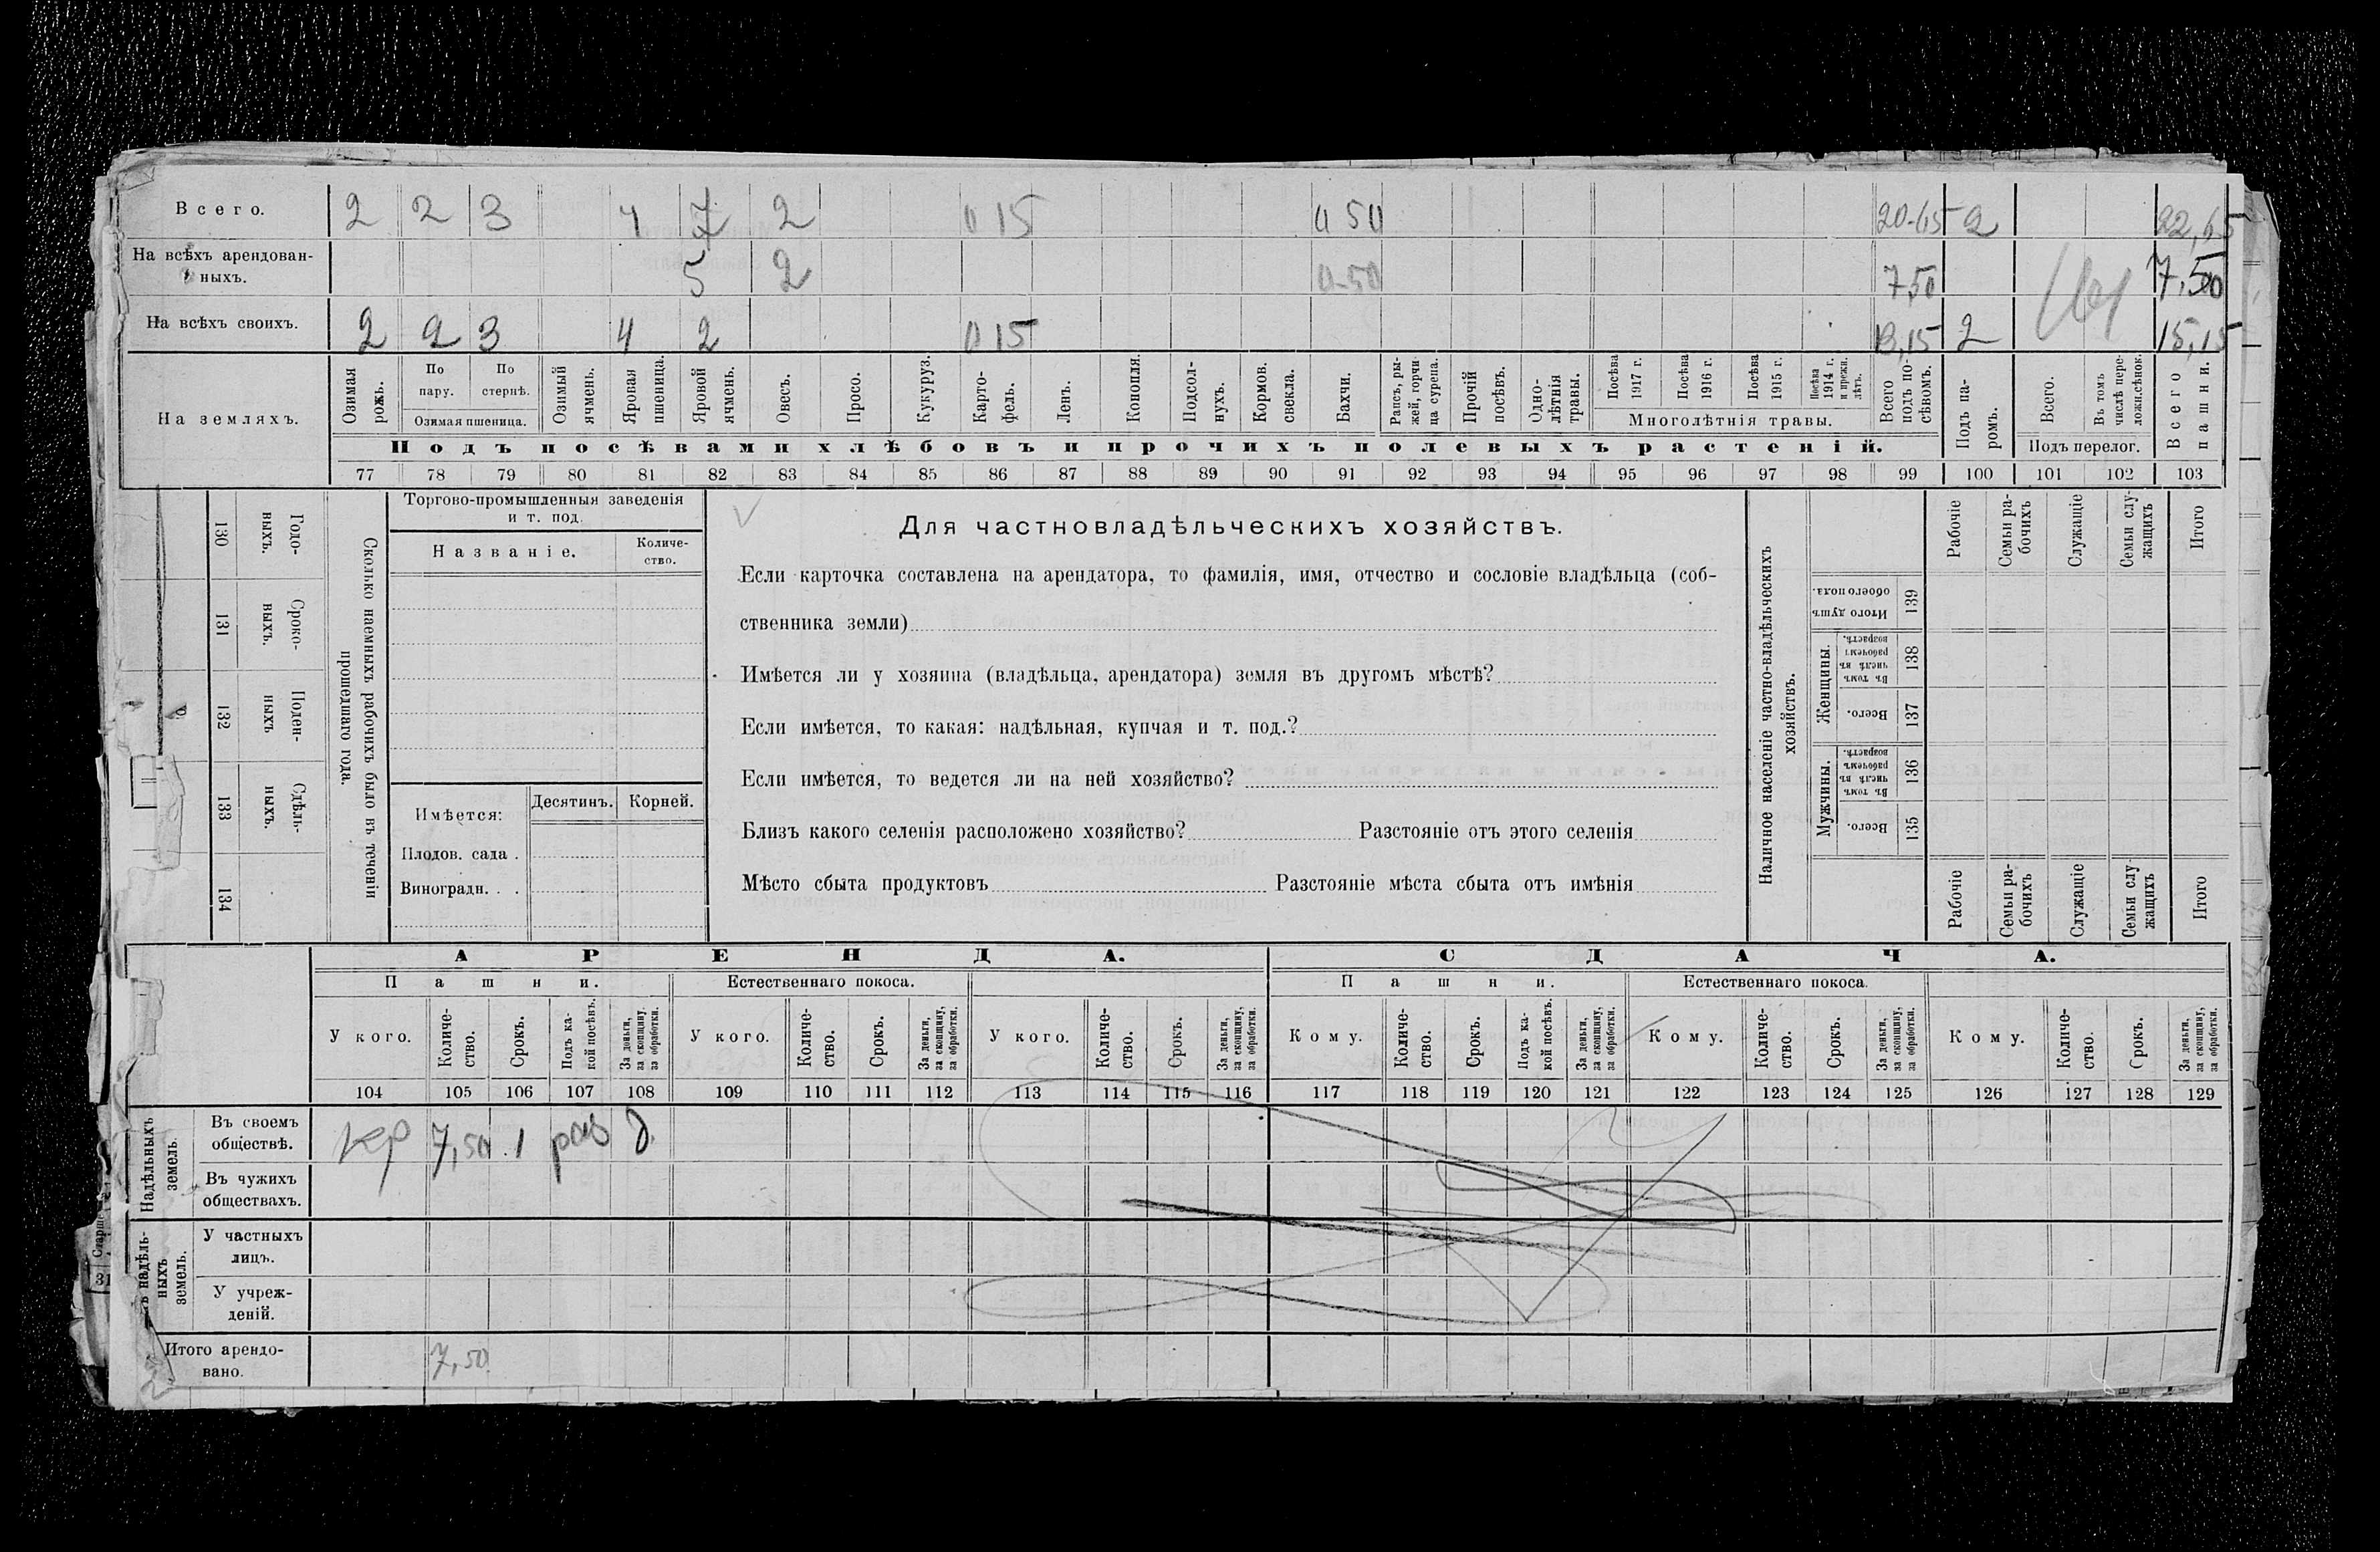 Всего. 2 2 3 4 7 2 0 15 0 50 20-65 2 22,65
На всѣхъ арендован-
ныхъ. 5 2 0-50 7,50 7,50
На всѣхъ своихъ. 2 2 3 4 2 0 15 13,15 2 15,15
На земляхъ.
Озимая рожь.
По пару.
По стернѣ.
Озимая пшеница.
Озимый ячмень.
Яровая пшеница.
Яровой ячмень.
Овесъ.
Просо.
Кукуруз.
Карто-
фель.
Ленъ.
Конопля.
Подсол-
нухъ.
Кормов. свекла.
Бахчи.
Рапсъ, ры-
жей, горчи-
ца сурепа.
Прочій посѣвъ.
Одно-
лѣтнія травы.
Посѣва 1917 г.
Посѣва 1916 г.
Посѣва 1915 г.
Посѣва 1914 г. и прежн. лѣтъ.
Многолѣтнія травы.
Всего подъ по-
сѣвомъ.
Подъ па-
ромъ.
Всего.
Въ томъ числѣ пере-
ложн.сѣнок.
Подъ перелог.
Всего пашни.
Подъ посѣвами хлѣбовъ и прочихъ полевыхъ растеній.
77 78 79 80 81 82 83 84 85 86 87 88 89 90 91 92 93 94 95 96 97 98 99 100 101 102 103
130 Годо-
ныхъ.
131 Сроко-
ныхъ.
132 Поден-
ныхъ
133 Сдѣль-
ныхъ.
134
Сколько наемныхъ рабочихъ было въ теченіи
прошедшаго года.
Торгово-промышленныя заведенія
и т. под.
Названіе.
Количе-
ство.
Имѣется:
Десятинъ. Корней.
Плодов. сада .
Виноградн. . .
Для частновладѣльческихъ хозяйствъ.
Если карточка составлена на арендатора, то фамилія, имя, отчество и сословіе владѣльца (соб-
ственника земли)
Имѣется ли у хозяина (владѣльца, арендатора) земля въ другомъ мѣстѣ?
Если имѣется, то какая: надѣльная, купчая и т. под.?
Если имѣется, то ведется ли на ней хозяйство?
Близъ какого селенія расположено хозяйство? Разстояніе отъ этого селенія
Мѣсто сбыта продуктовъ Разстояніе мѣста сбыта отъ имѣнія
Наличное населеніе частно-владѣльческихъ
хозяйствъ.
Рабочіе
Семьи ра-
бочихъ
Служащіе
Семьи слу-
жащихъ
Итого
Итого душъ обоего пола. 139
Женщины.
Въ томъ числѣ въ рабочемъ возрастѣ. 138
Всего. 137
Мужчины.
Въ томъ числѣ въ рабочемъ возрастѣ. 136
Всего. 135
Рабочіе
Семьи ра-
бочихъ
Служащіе
Семьи слу
жащихъ
Итого
АРЕНДА. СДАЧА.
Пашни. Естественнаго покоса. Пашни. Естественнаго покоса.
У кого.
Количе-
ство.
Срокъ.
Подъ ка-
кой посѣвъ.
За деньги, за скопщину, за обработки.
У кого.
Количе-
ство.
Срокъ.
За деньги, за скопщину, за обработки.
У кого.
Количе-
ство.
Срокъ.
За деньги, за скопщину, за обработки.
Кому.
Количе-
ство.
Срокъ.
Подъ ка-
кой посѣвъ.
За деньги, за скопщину, за обработки.
Кому.
Количе-
ство.
Срокъ.
За деньги, за скопщину, за обработки.
Кому.
Количе-
ство.
Срокъ.
За деньги, за скопщину, за обработки.
104 105 106 107 108 109 110 111 112 113 114 115 116 117 118 119 120 121 122 123 124 125 126 127 128 129
Надѣльныхъ земель.
Въ своемъ
обществѣ. кр 7,50 1 раз д.
Въ чужихъ
обществахъ.
надѣль-
ныхъ
земель.
У частныхъ
лицъ.
У учреж-
деній.
Итого арендо-
вано. 7,50
Старше
31